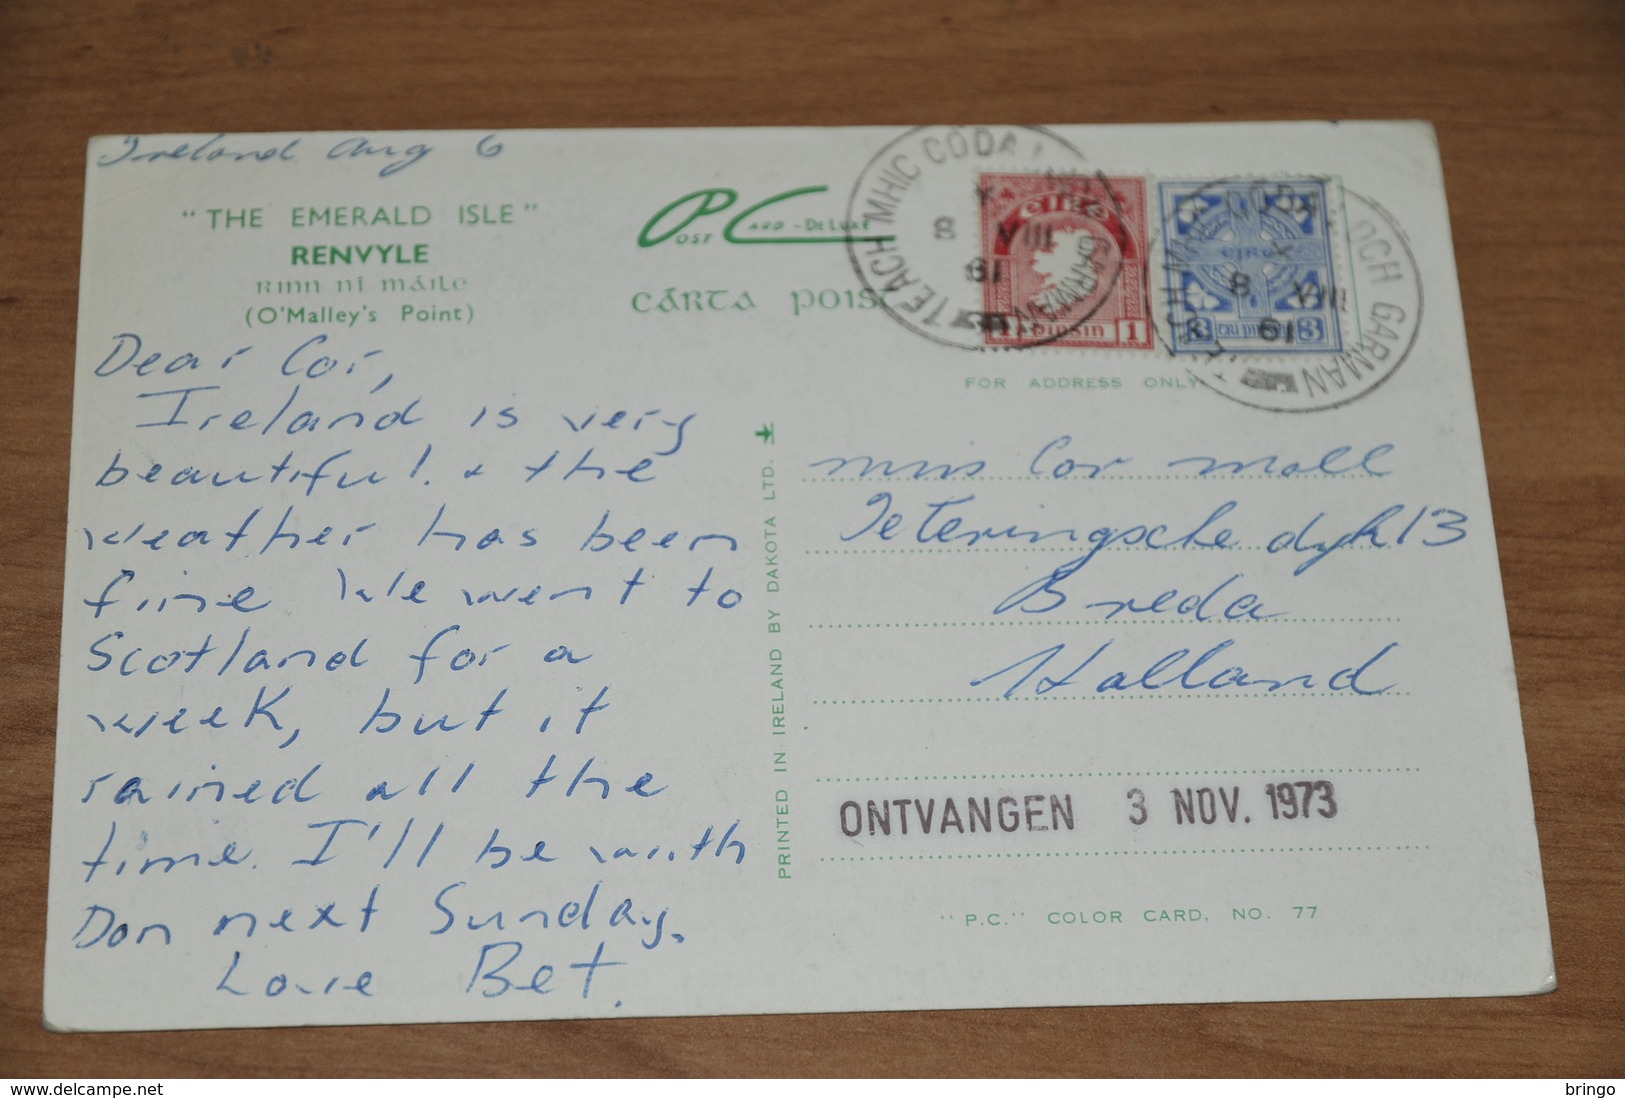 Ireland Aug 6
"THE EMERALD ISLE"
RENVYLE
Rinn ní Máile
(O'Malley's Point)
Dear Cor,
Ireland is very
beautiful. & the
weather has been
fine We went to
Scotland for a
week, but it
rained all the
time. I'll be with
Don next Sunday.
Love Bet.
POST CARD - DE LUXE
CÁRTA POIST
TEACH MHIC CÓDA LOCH GARMAN
8 VIII 61
éire
1 pinsin 1
TEACH MHIC CÓDA LOCH GARMAN
8 VIII 61
éire
3 trí pingin 3
FOR ADDRESS ONLY
miss Cor Moll
Teteringsche dyk 13
Breda
Holland
ONTVANGEN 3 NOV. 1973
"P.C." COLOR CARD. NO. 77
PRINTED IN IRELAND BY DAKOTA LTD.
delcampe.net
bringo